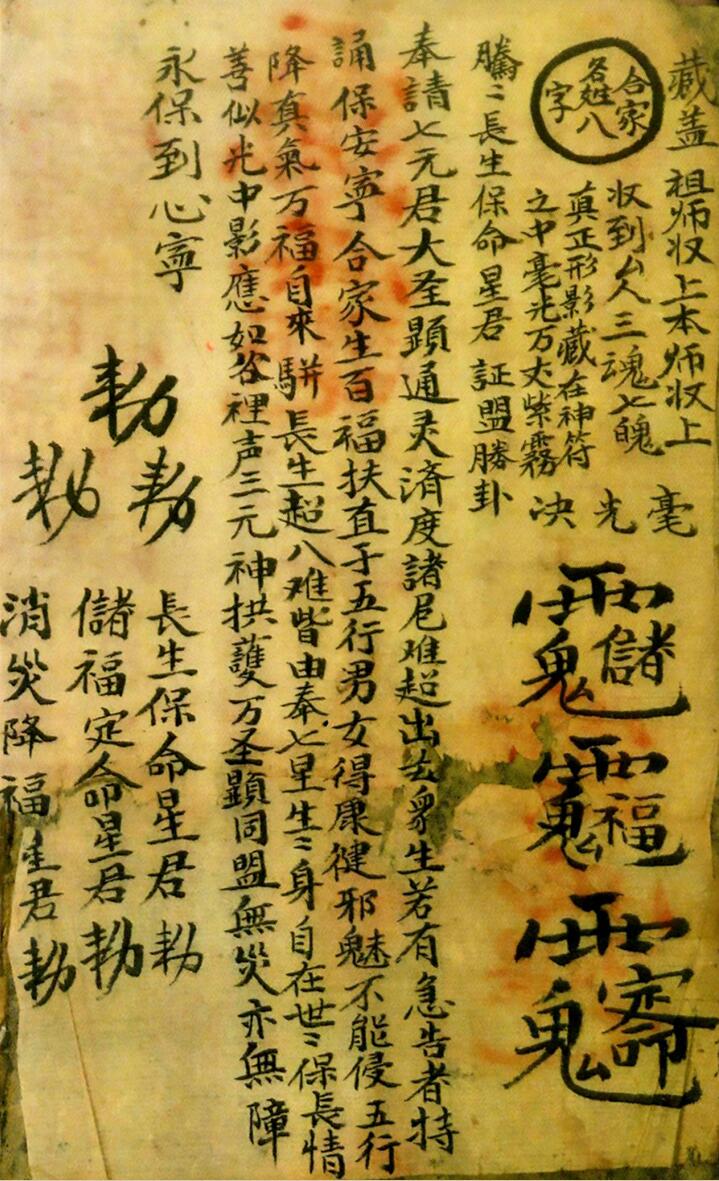 藏盖
祖师収上本师収上
合家
名姓八
字
収到厶人三魂七魄
真正形影藏在神符
之中毫光万丈紫霧
毫光决
騰〻長生保命星君 証盟勝卦
奉請七元君大圣顕通灵済度諸厄难超出去衆生若有急告者持
誦保安寧合家生百福扶直于五行男女得康健邪魅不能侵五行
降真氣万福自來駢長生超八难皆由奉七星生〻身自在世〻保長情
善似光中影應如谷裡声三元神拱護万圣顕同盟無災亦無障
永保到心寧
勅
勅
勅
長生保命星君勅
儲福定命星君勅
消災降福星君勅